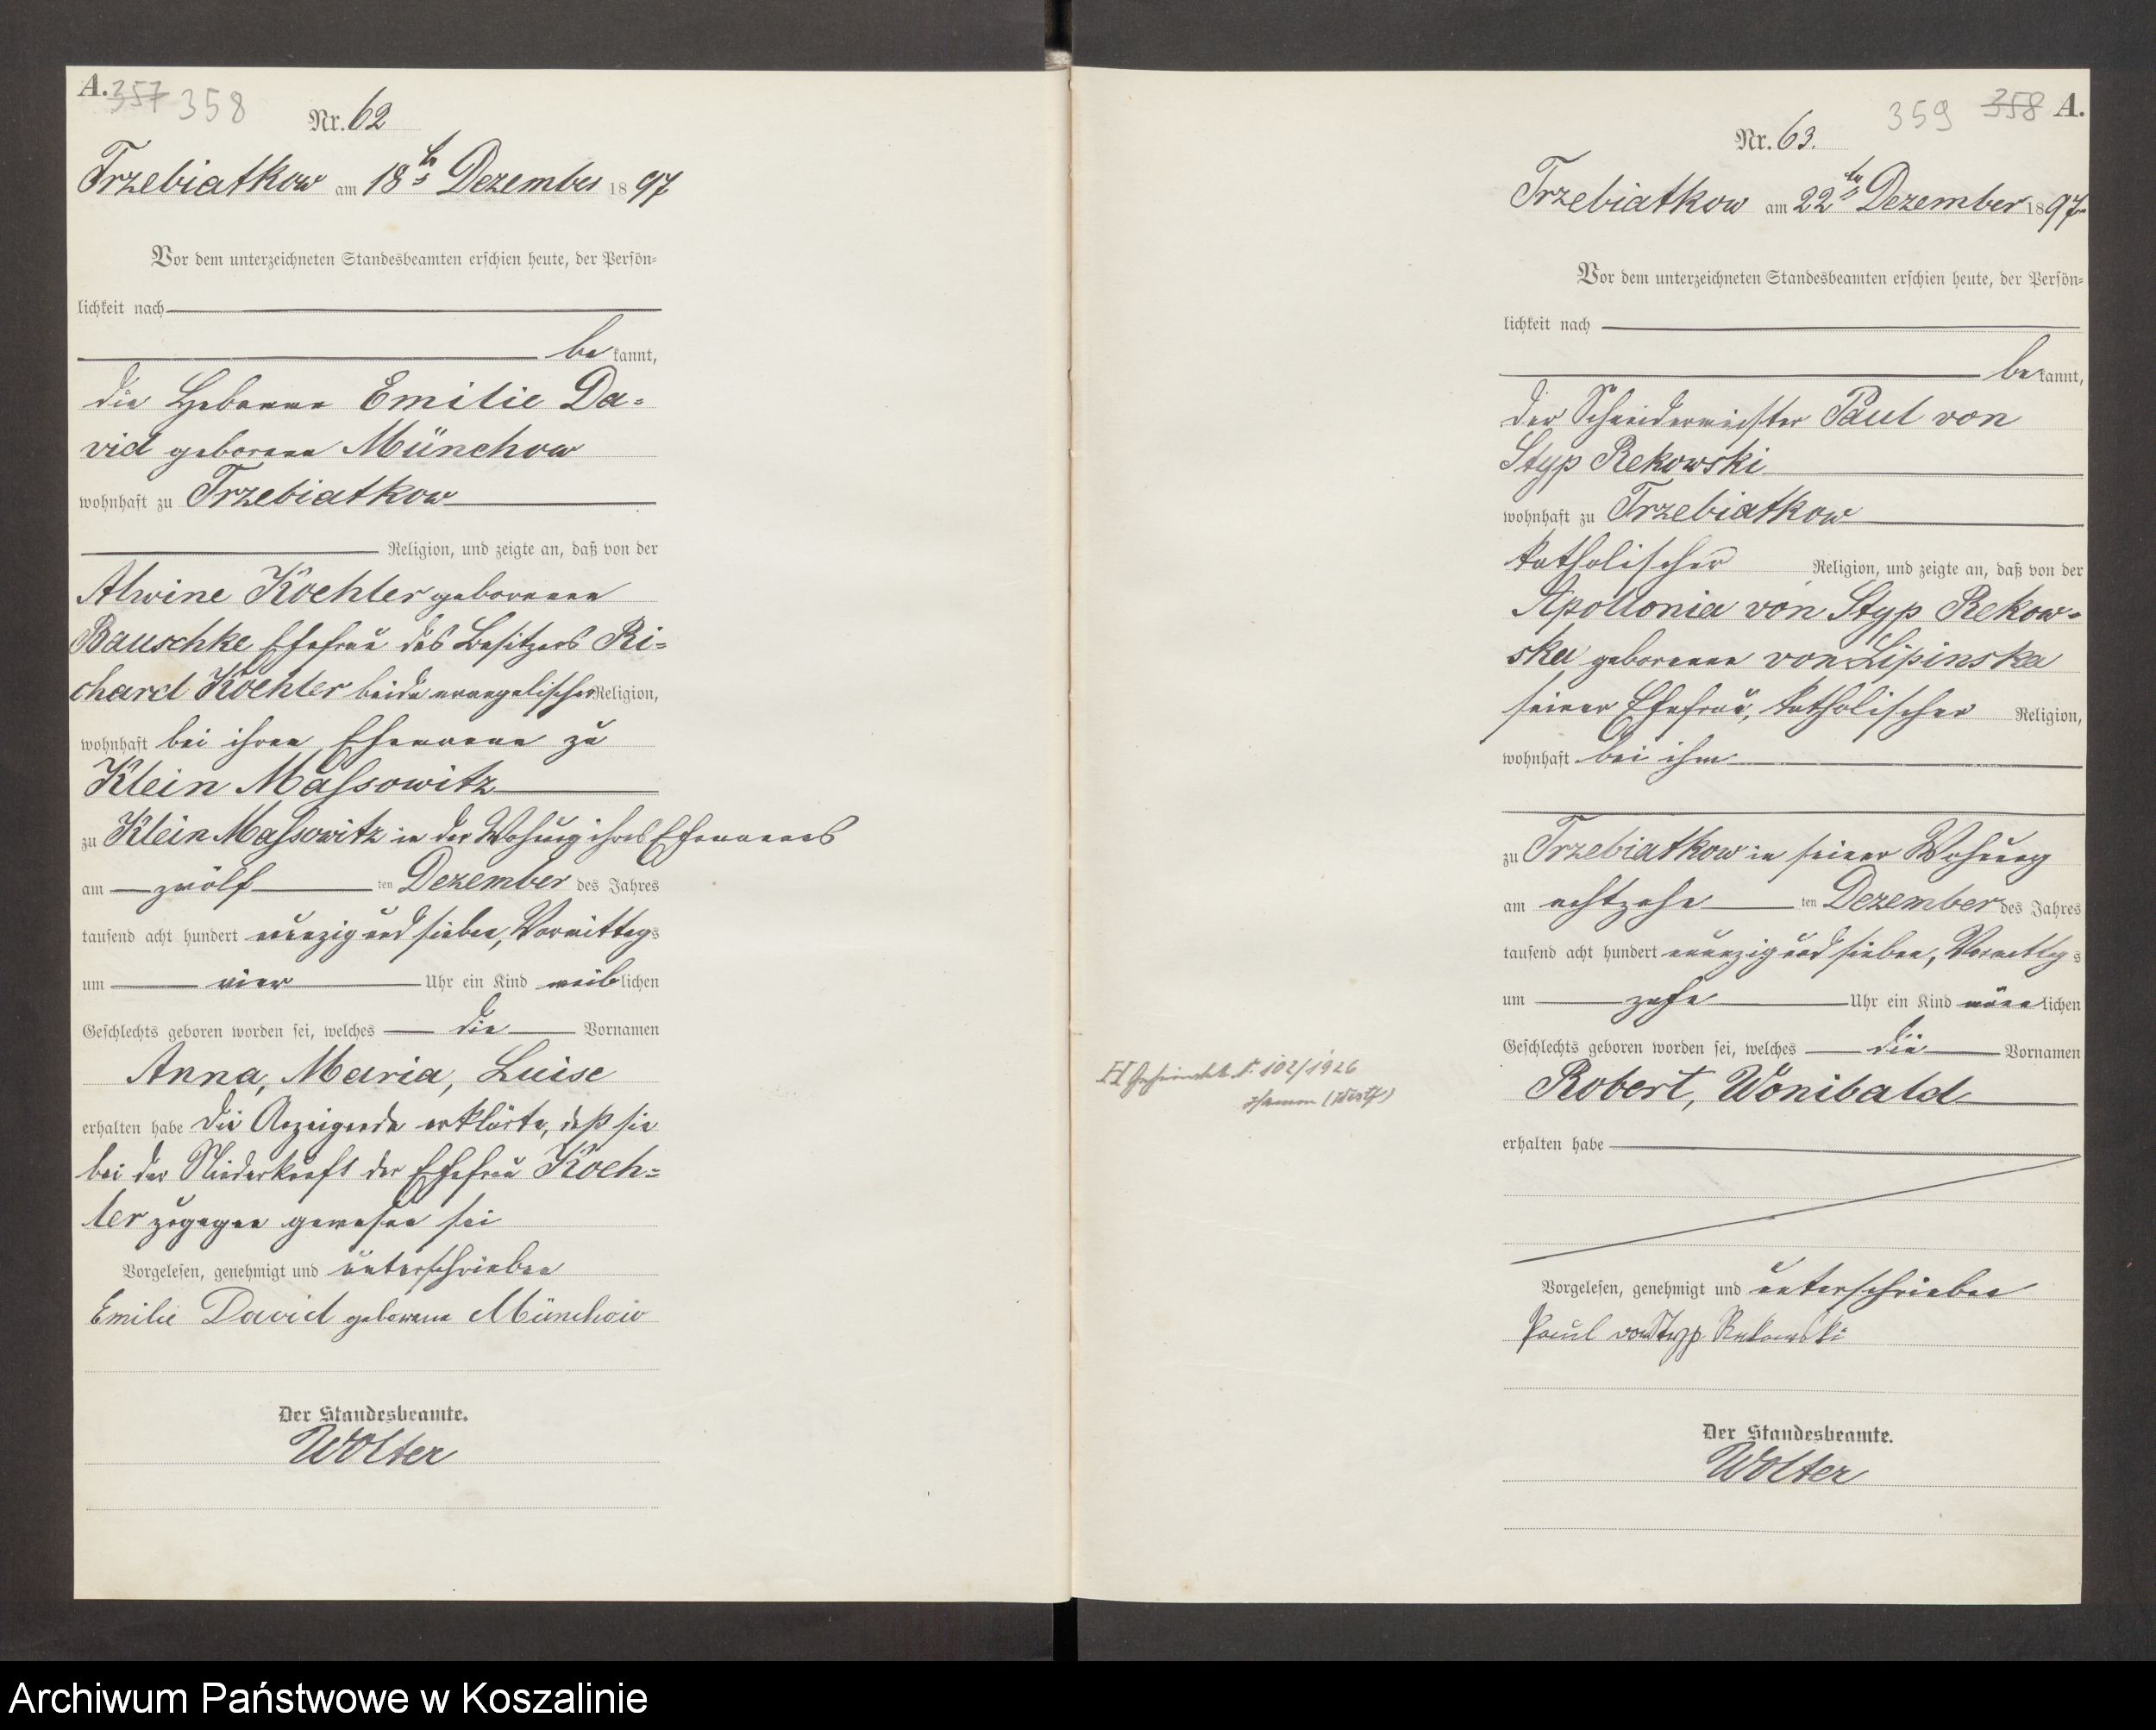 A. 357 358
Nr. 62
Trzebiatkow am 18ten Dezember 1897
Vor dem unterzeichneten Standesbeamten erschien heute, der Persön=
lichkeit nach
be kannt,
die Hebamme Emilie Da=
vid geborene Münchow
wohnhaft zu Trzebiatkow
Religion, und zeigte an, daß von der
Alwine Koehler geborenen
Bauschke Ehefrau des Besitzers Ri=
chard Koehler beide evangelischer Religion,
wohnhaft bei ihrem Ehemanne zu
Klein Massowitz
zu Klein Massowitz in der Wohnung ihres Ehemannes
am zwölf ten Dezember des Jahres
tausend acht hundert neunzig und sieben, Vormittags
um vier Uhr ein Kind weiblichen
Geschlechts geboren worden sei, welches die Vornamen
Anna, Maria, Luise
erhalten habe Die Anzeigende erklärte, daß sie
bei der Niederkunft der Ehefrau Koeh=
ler zugegen gewesen sei
Vorgelesen, genehmigt und unterschrieben
Emilie David geborene Münchow
Der Standesbeamte.
Wolter
359 358 A.
Nr. 63.
Trzebiatkow am 22ten Dezember 1897
Vor dem unterzeichneten Standesbeamten erschien heute, der Persön=
lichkeit nach
be kannt,
der Schneidermeister Paul von
Styp Rekowski
wohnhaft zu Trzebiatkow
katholischer Religion, und zeigte an, daß von der
Apollonia von Styp Rekow=
ska geborenen von Lipinska
seiner Ehefrau, katholischer Religion,
wohnhaft bei ihm
zu Trzebiatkow in seiner Wohnung
am achtzehn ten Dezember des Jahres
tausend acht hundert neunzig und sieben, Vormittags
um zehn Uhr ein Kind männlichen
Geschlechts geboren worden sei, welches die Vornamen
Robert, Wonibald
erhalten habe
Vorgelesen, genehmigt und unterschrieben
Paul von Styp Rekowski
Der Standesbeamte.
Wolter
102/1926
Hamm (Westf)
Archiwum Państwowe w Koszalinie